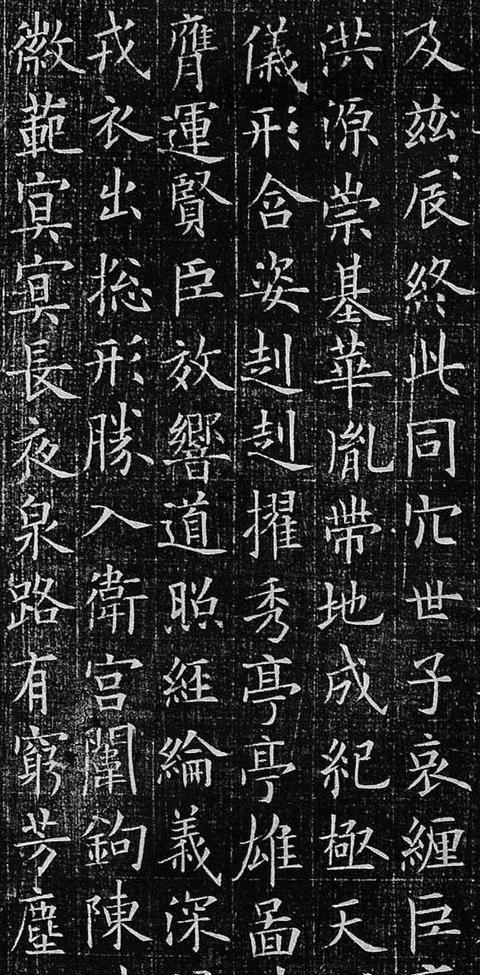 及兹辰終此同穴世子哀纏臣
洪源崇基華胤帶地成紀極天
儀形含姿赳赳擢秀亭亭雄啚
膺運賢臣放響道照經綸義深
戎衣出摠形勝入衛宫闈鉤陳
徽範冥冥長夜泉路有窮芳塵